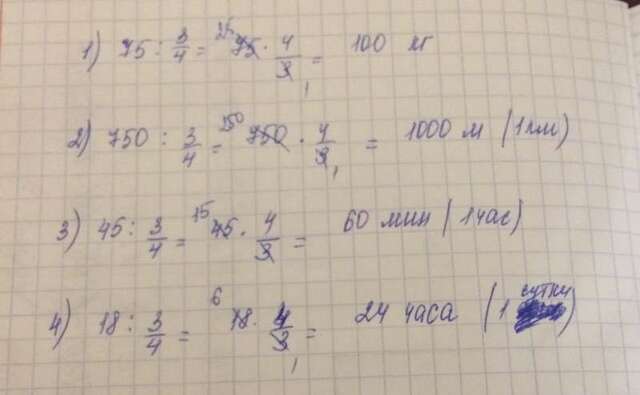 1) 75 : 3/4 = 25 75 · 4/3 1 = 100 кг
2) 750 : 3/4 = 250 750 · 4/3 1 = 1000 м (1 км)
3) 45 : 3/4 = 15 45 · 4/3 = 60 мин (1 час)
4) 18 : 3/4 = 6 18 · 4/3 1 = 24 часа (1 сутки)